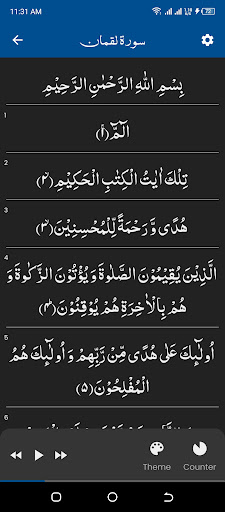 11:31 AM
سورة لقمان
بِسْمِ اللهِ الرَّحْمٰنِ الرَّحِيْمِ
1
الٓمّٓ ﴿۱﴾
2
تِلْكَ اٰيٰتُ الْكِتٰبِ الْحَكِيْمِ ﴿۲﴾
3
هُدًى وَّرَحْمَةً لِّلْمُحْسِنِيْنَ ﴿۳﴾
4
الَّذِيْنَ يُقِيْمُوْنَ الصَّلٰوةَ وَيُؤْتُوْنَ الزَّكٰوةَ وَ
هُمْ بِالْاٰخِرَةِ هُمْ يُوْقِنُوْنَ ﴿۴﴾
5
اُولٰٓئِكَ عَلٰى هُدًى مِّنْ رَّبِّهِمْ وَاُولٰٓئِكَ هُمُ
الْمُفْلِحُوْنَ ﴿۵﴾
6
Theme
Counter